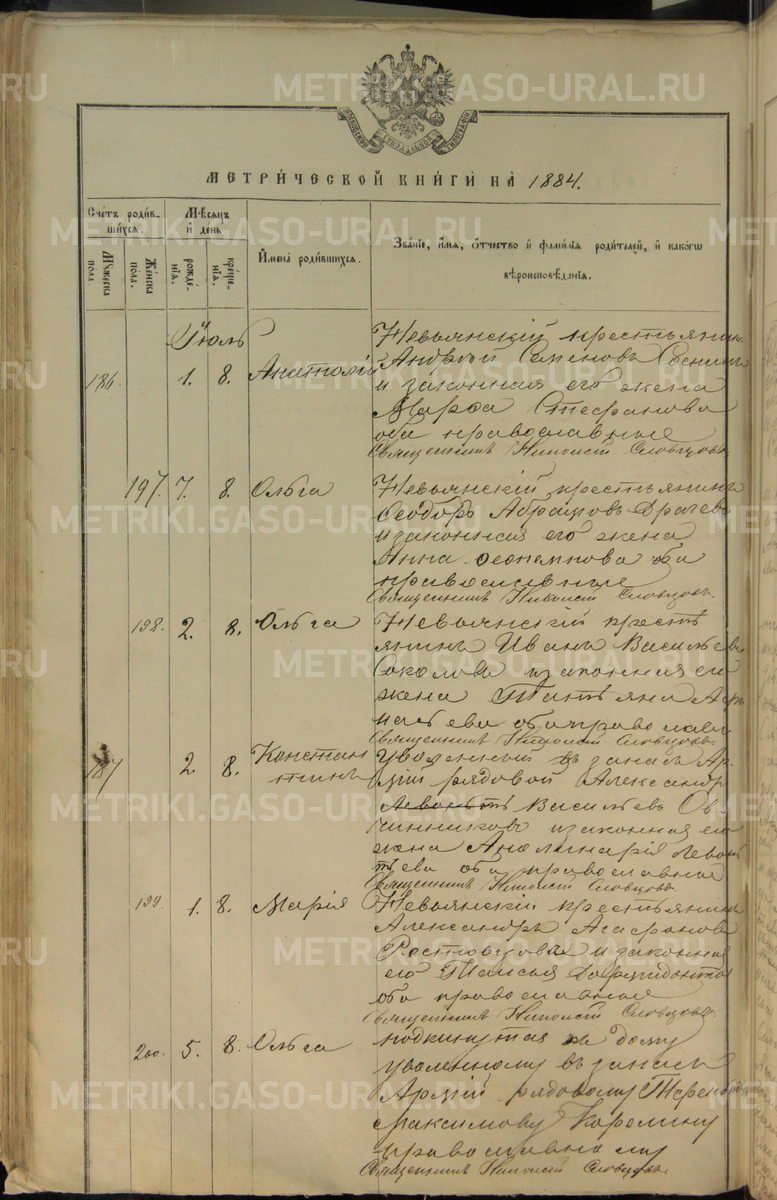 МОСКОВСКОЙ СѴНОДАЛЬНОЙ ТИПОГРАФІИ
МЕТРИ́ЧЕСКОЙ КНИ́ГИ НА̀ 1884.
Сче́тъ роди́вшихся.
Мꙋ́жеска пола.
Же́нска пола.
Мѣ́сяцъ и҆ день
рожде́нїѧ.
креще́нїѧ.
И҆мена̀ роди́вшихсѧ.
Зва́нїе, и҆́мѧ, ѻ҆́тчество и҆ фами́лїѧ роди́телей, и҆ како́гѡ
вѣроисповѣ́данїѧ.
Іюль
186. 1. 8. Анатолій
Невьянскій крестьянинъ
Андрей Семеновъ Соснинъ
и законная его жена
Марѳа Стефанова
оба православные
Священникъ Николай Словцовъ
197. 7. 8. Ольга
Невьянскій крестьянинъ
Ѳеодоръ Абрамовъ Драчевъ
и законная его жена
Анна оба
православные
Священникъ Николай Словцовъ.
198. 2. 8. Ольга
Невьянскій кресть
янинъ Иванъ Васильевъ
Соколовъ и законная его
жена Татьяна
оба православ
Священникъ Николай Словцовъ
187 2. 8. Констан
тинъ
Уволенный въ запасъ Ар
мій рядовой Александръ
Васильевъ Ов
чинниковъ и законная его
жена Аполинарія Леонть
ева оба православные
Священникъ Николай Словцовъ
199. 1. 8. Марія
Невьянскій крестьянинъ
Александръ Агафоновъ
Ростовцовъ и законная
его Таисья
оба православные
Священникъ Николай Словцовъ.
200. 5. 8. Ольга
подкинутая къ дому
уволенному въ запасъ
Армій рядовому
Максимову Карелину
православному
Священникъ Николай Словцовъ
METRIKI.GASO-URAL.RU